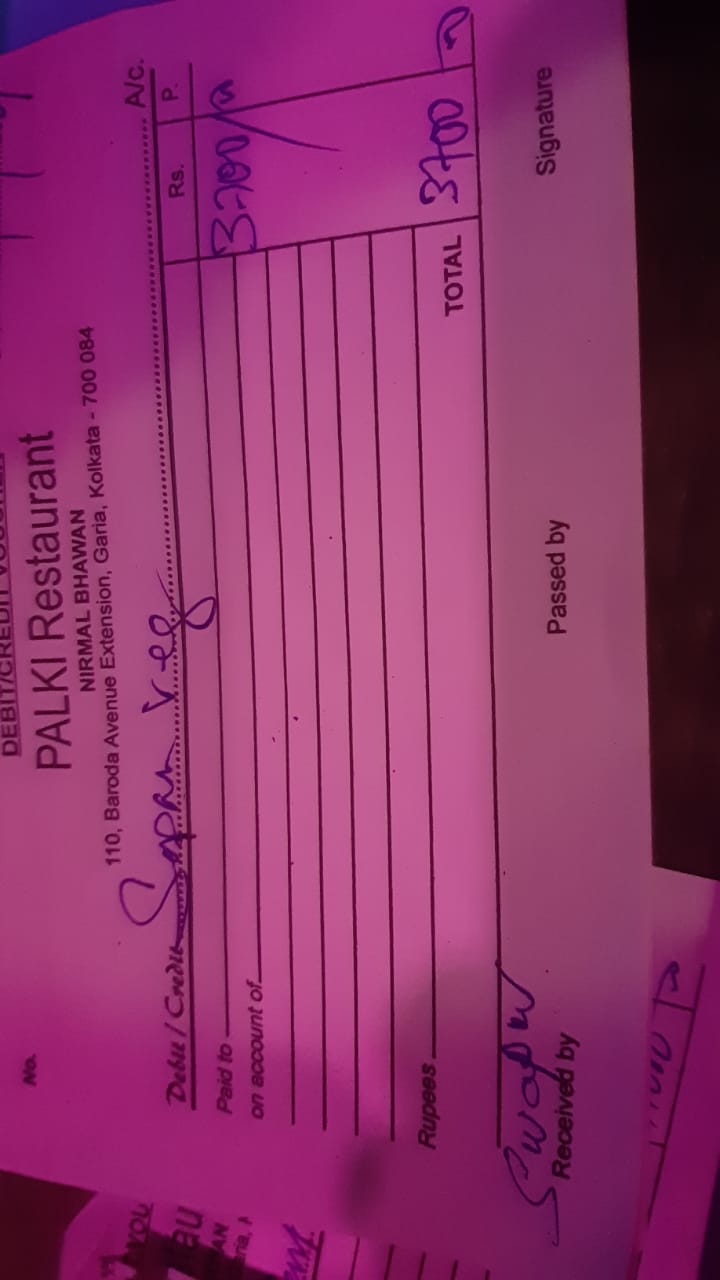 DEBIT/CREDIT VOUCHER
PALKI Restaurant
NIRMAL BHAWAN
110, Baroda Avenue Extension, Garia, Kolkata - 700 084
No.
Debit / Credit Sapan veg A/c.
Rs. P.
Paid to 3700/-
on account of
Rupees TOTAL 3700
Swapan
Received by Passed by Signature